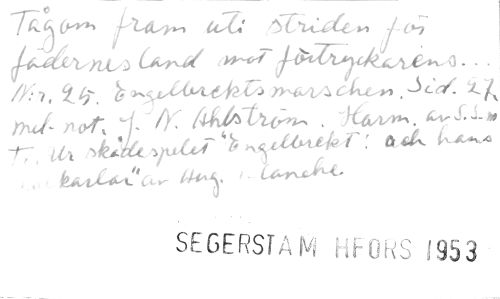 Tågom fram uti striden för
fädernesland mot förtryckarens...
N:r. 25. Engelbrektsmarschen. Sid. 27.
mel. not. J. N. Ahlström. Harm. av S.S-m
T.. Ur skådespelet "Engelbrekt! och hans
karlar" av Aug. Blanche.
SEGERSTAM HFORS 1953